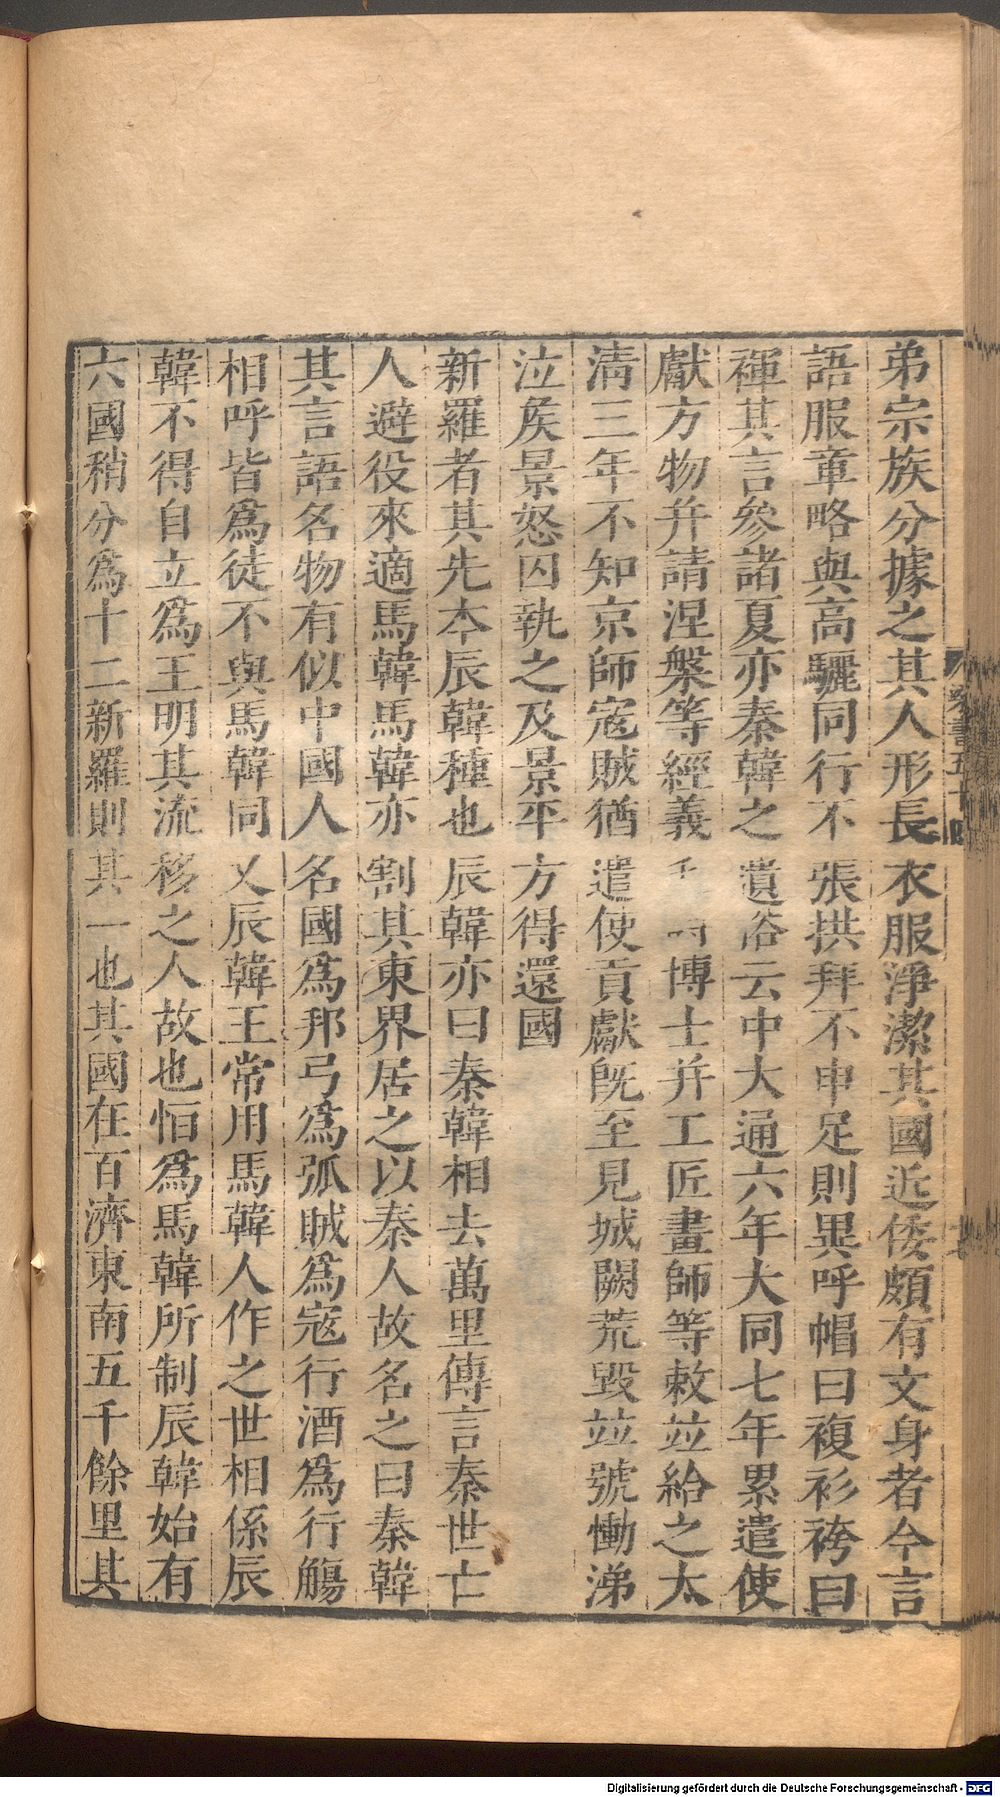 弟宗族分據之其人形長衣服淨潔其國近倭頗有文身者今言
語服章略與高驪同行不張拱拜不申足則異呼帽曰複衫袴曰
褌其言參諸夏亦秦韓之遺俗云中大通六年大同七年累遣使
獻方物并請涅槃等經義博士并工匠畫師等敕竝給之太
淸三年不知京師寇賊猶遣使貢獻旣至見城闕荒毀竝號慟涕
泣矦景怒囚執之及景平方得還國
新羅者其先本辰韓種也辰韓亦曰秦韓相去萬里傳言秦世亡
人避役來適馬韓馬韓亦割其東界居之以秦人故名之曰秦韓
其言語名物有似中國人名國爲邦弓爲弧賊爲寇行酒爲行觴
相呼皆爲徒不與馬韓同又辰韓王常用馬韓人作之世相係辰
韓不得自立爲王明其流移之人故也恒爲馬韓所制辰韓始有
六國稍分爲十二新羅則其一也其國在百濟東南五千餘里其
梁書五十四
Digitalisierung gefördert durch die Deutsche Forschungsgemeinschaft - DFG